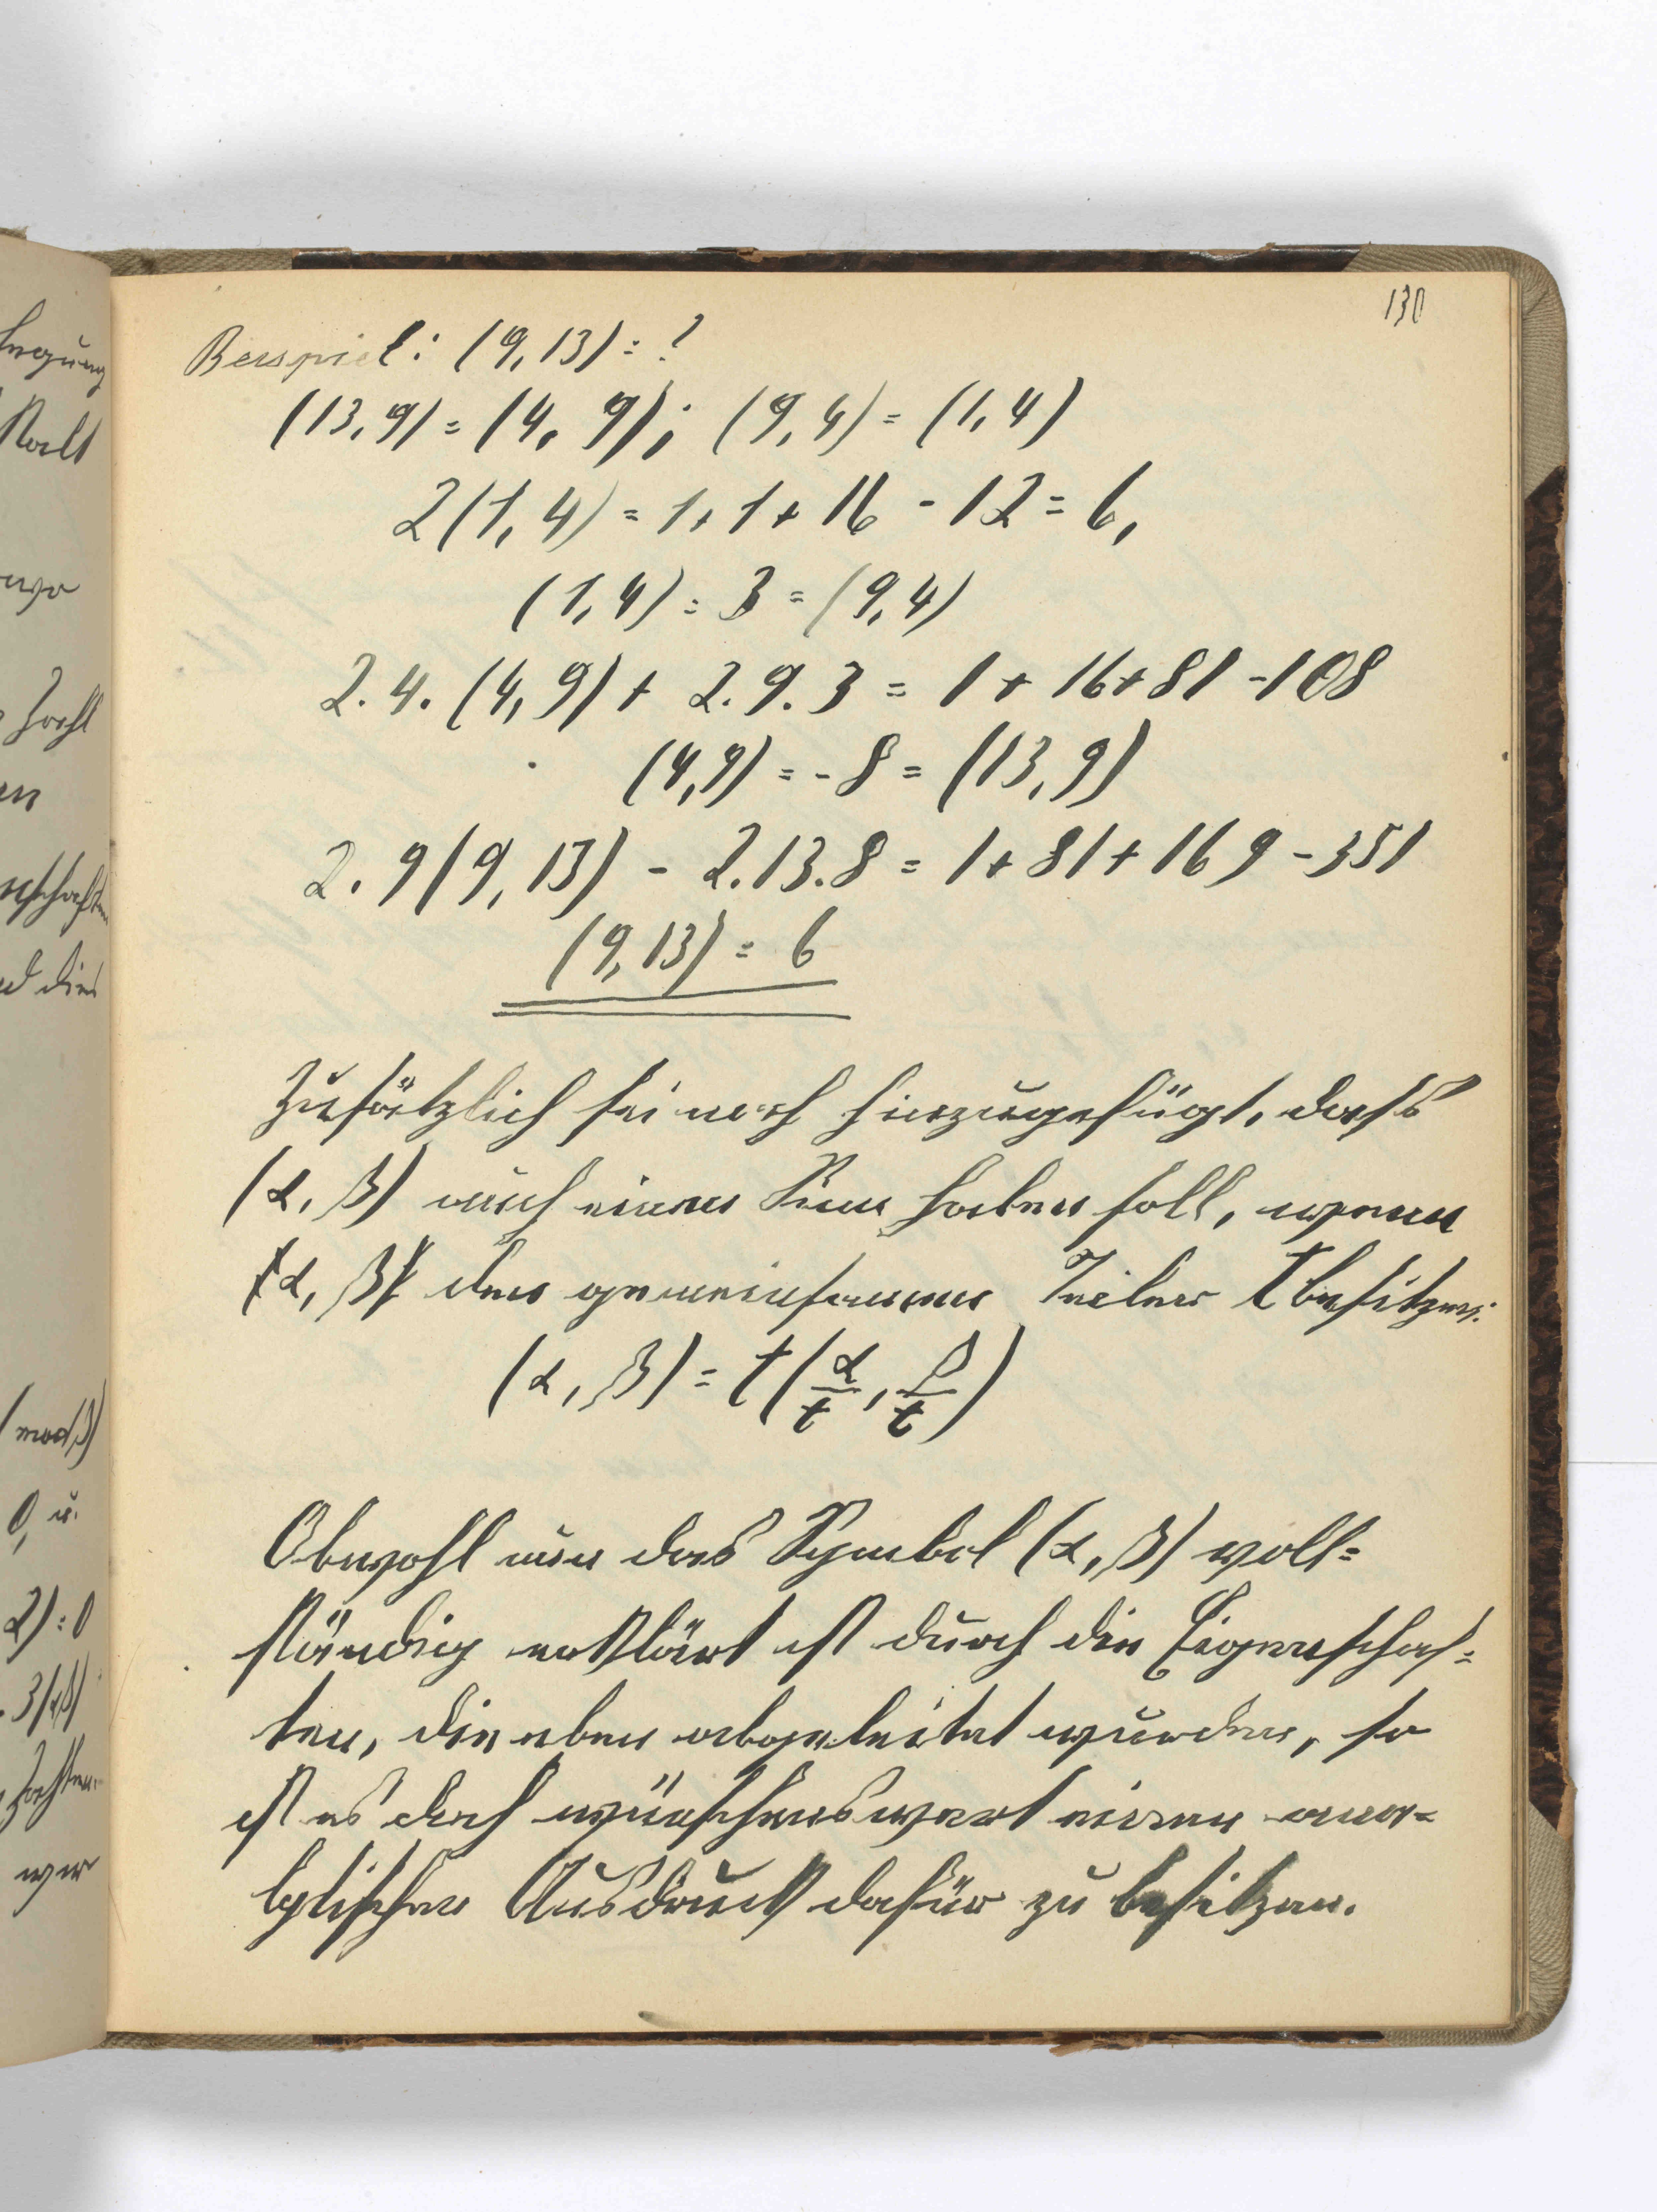 130
Beispiel: (9,13) = ?
(13,9) = (4,9); (9,4) = (1,4)
2(1,4) = 1+1+16-12 = 6,
(1,4) = 3 = (9,4)
2.4.(4,9) + 2.9.3 = 1+16+81-108
(4,9) = -8 = (13,9)
2.9(9,13) - 2.13.8 = 1+81+169-351
(9,13) = 6
Zusätzlich sei noch hinzugefügt, dass
(α, β) auch einen Sinn haben soll, wenn
α, β den gemeinsamen Teiler t besitzen:
(α, β) = t(α/t, β/t)
Obwohl nun das Symbol (α, β) voll=
ständig erklärt ist durch die Eigenschaf=
ten, die eben abgeleitet wurden, so
ist es doch wünschenswert einen ana=
lytischen Ausdruck dafür zu besitzen.